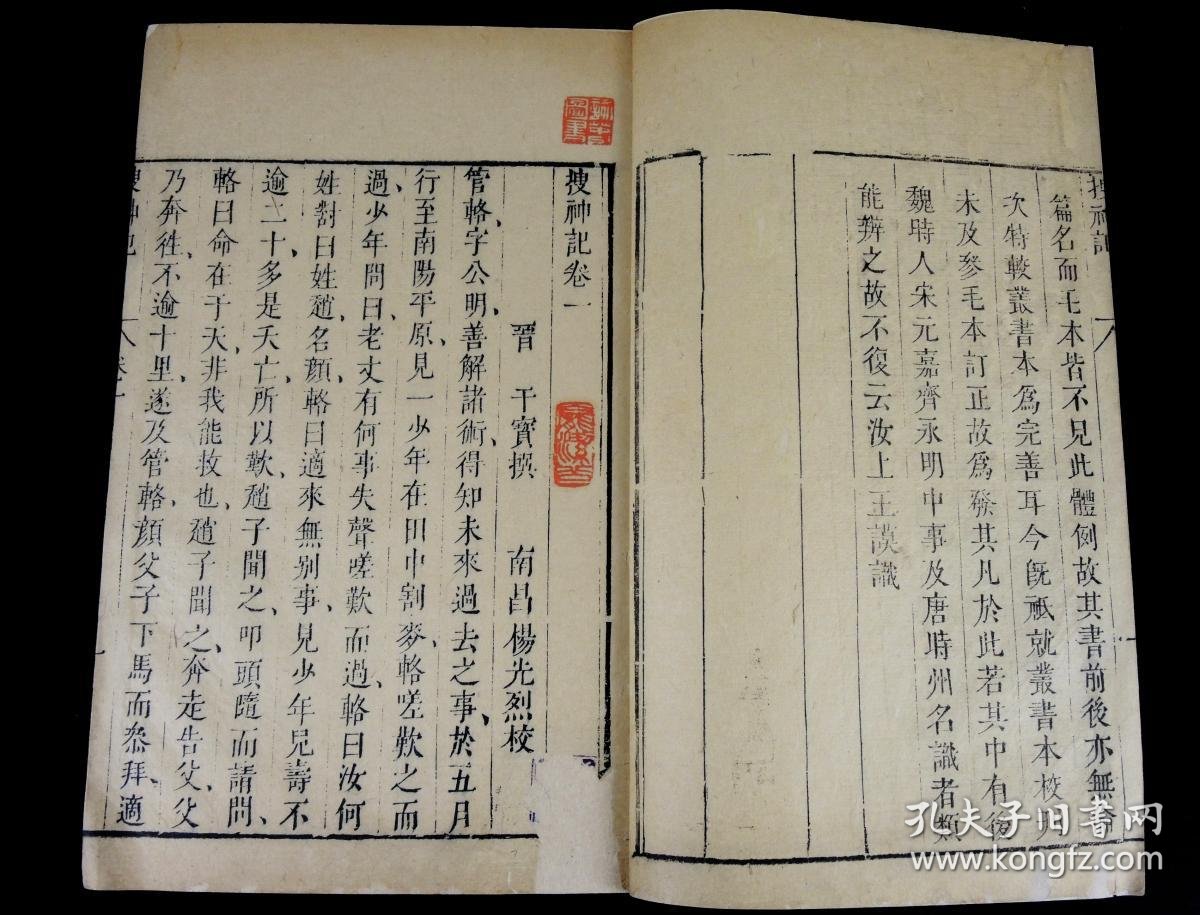 搜神記
篇名而毛本皆不見此體例故其書前後亦無
次特較叢書本爲完善耳今既祗就叢書本校
未及參毛本訂正故爲發其凡於此若其中有後
魏時人宋元嘉齊永明中事及唐時州名識者類
能辨之故不復云汝上王謨識
搜神記卷一
晉 干寶撰 南昌楊光烈校
管輅字公明善解諸術得知未來過去之事、於五月
行至南陽平原、見一少年在田中割麥、輅嗟歎之而
過、少年問曰、老丈有何事失聲嗟歎而過、輅曰汝何
姓、對曰姓趙名顔、輅曰適來無別事、見少年兄壽不
逾二十、多是夭亡、所以歎、趙子聞之、叩頭隨而請問、
輅曰命在于天、非我能救也、趙子聞之、奔走告父、父
乃奔往、不逾十里、遂及管輅、顔父子下馬而叅拜、適
搜神記 卷一
孔夫子旧书网
www.kongfz.com